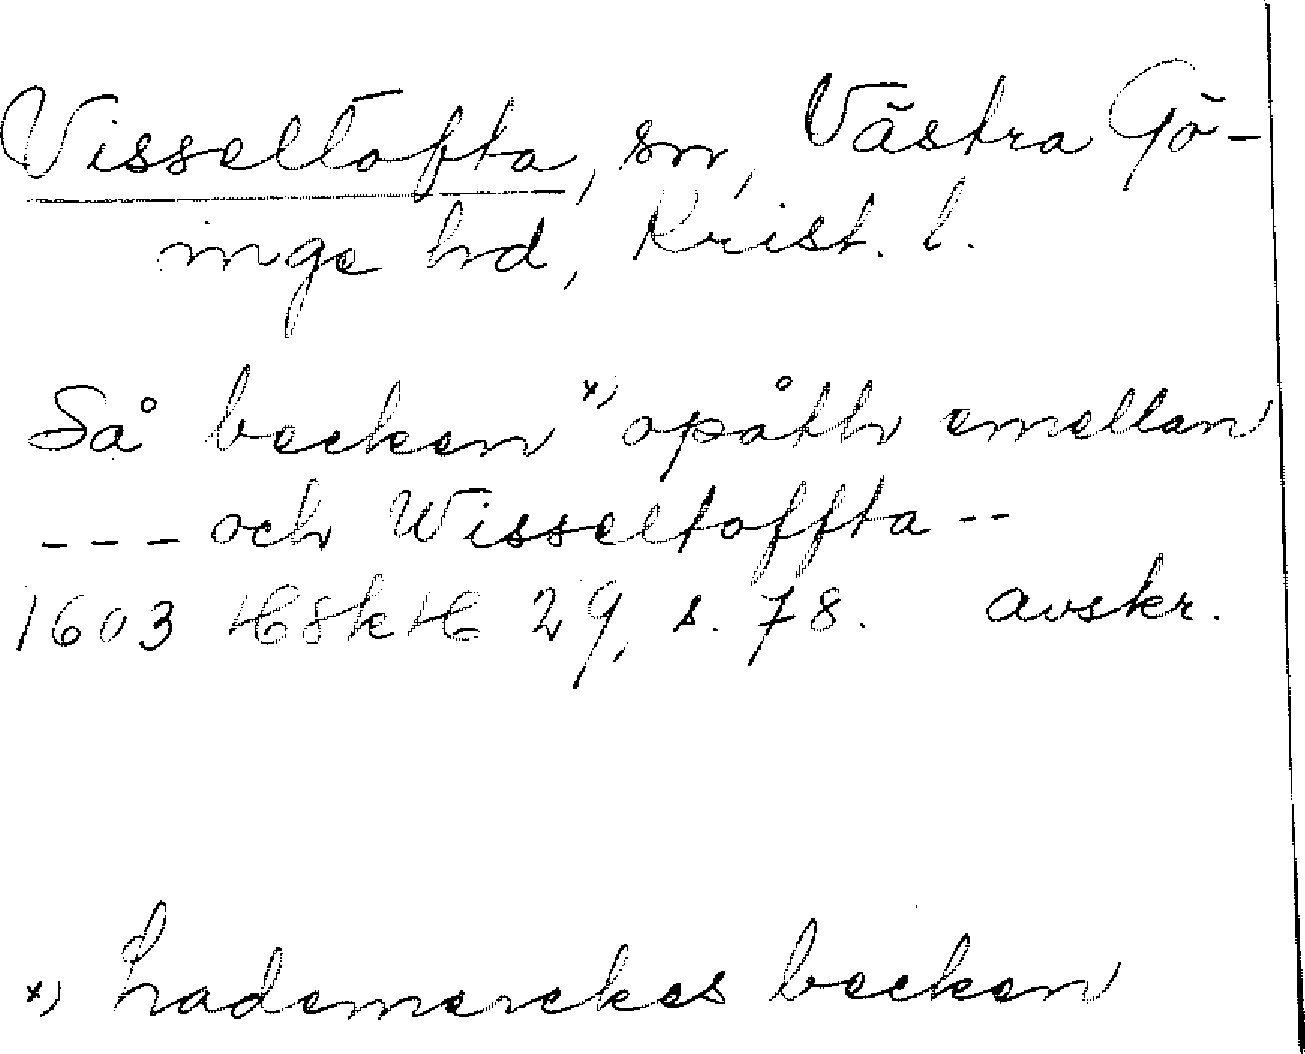 Visseltofta, sn, Västra Gö-
inge hd, Krist. l.
Så becken *) opåth emellan
--- och Wisseltoffta --
1603 HSkH 29, s. 78. avskr.
*) hademerckes becken